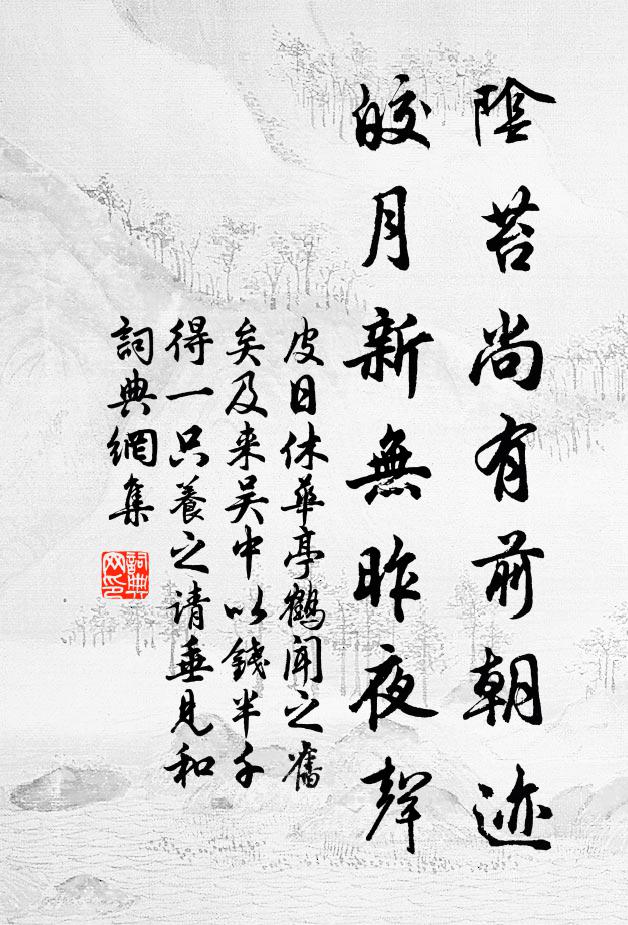 陰苔尚有前朝迹
皎月新無昨夜聲
皮日休華亭鶴聞之舊
矣及来吴中以錢半千
得一只養之请垂見和
詞典網集
詞典
网印